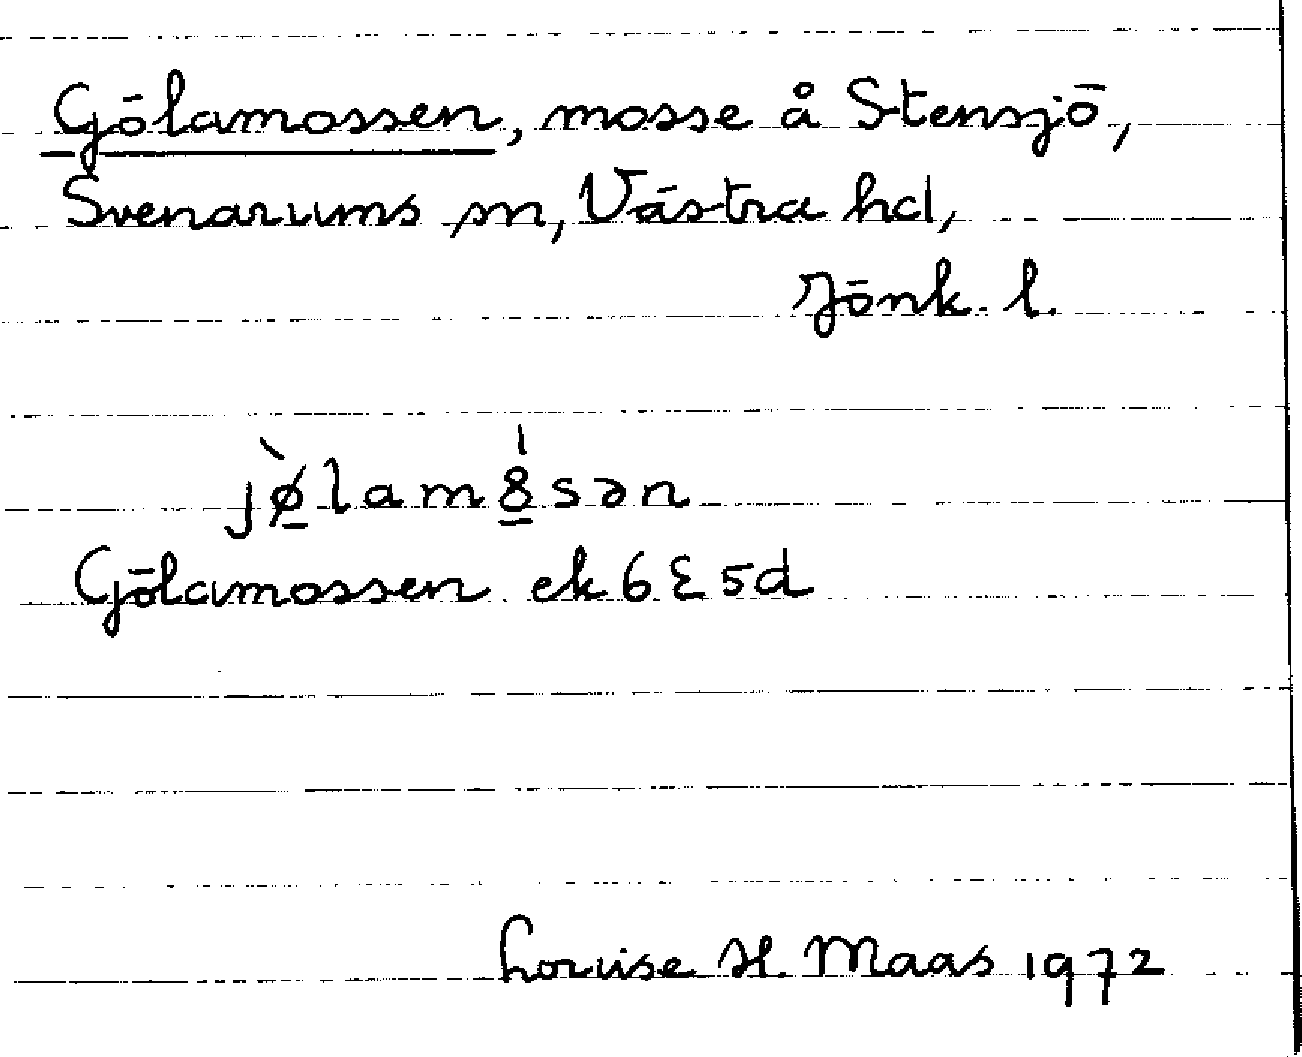 Gölamossen, mosse å Stensjö,
Svenarums sn, Västra hd,
Jönk. l.
jø̲̀lam8̲́sən
Gölamossen ek 6 E 5d
Louise H. Maas 1972